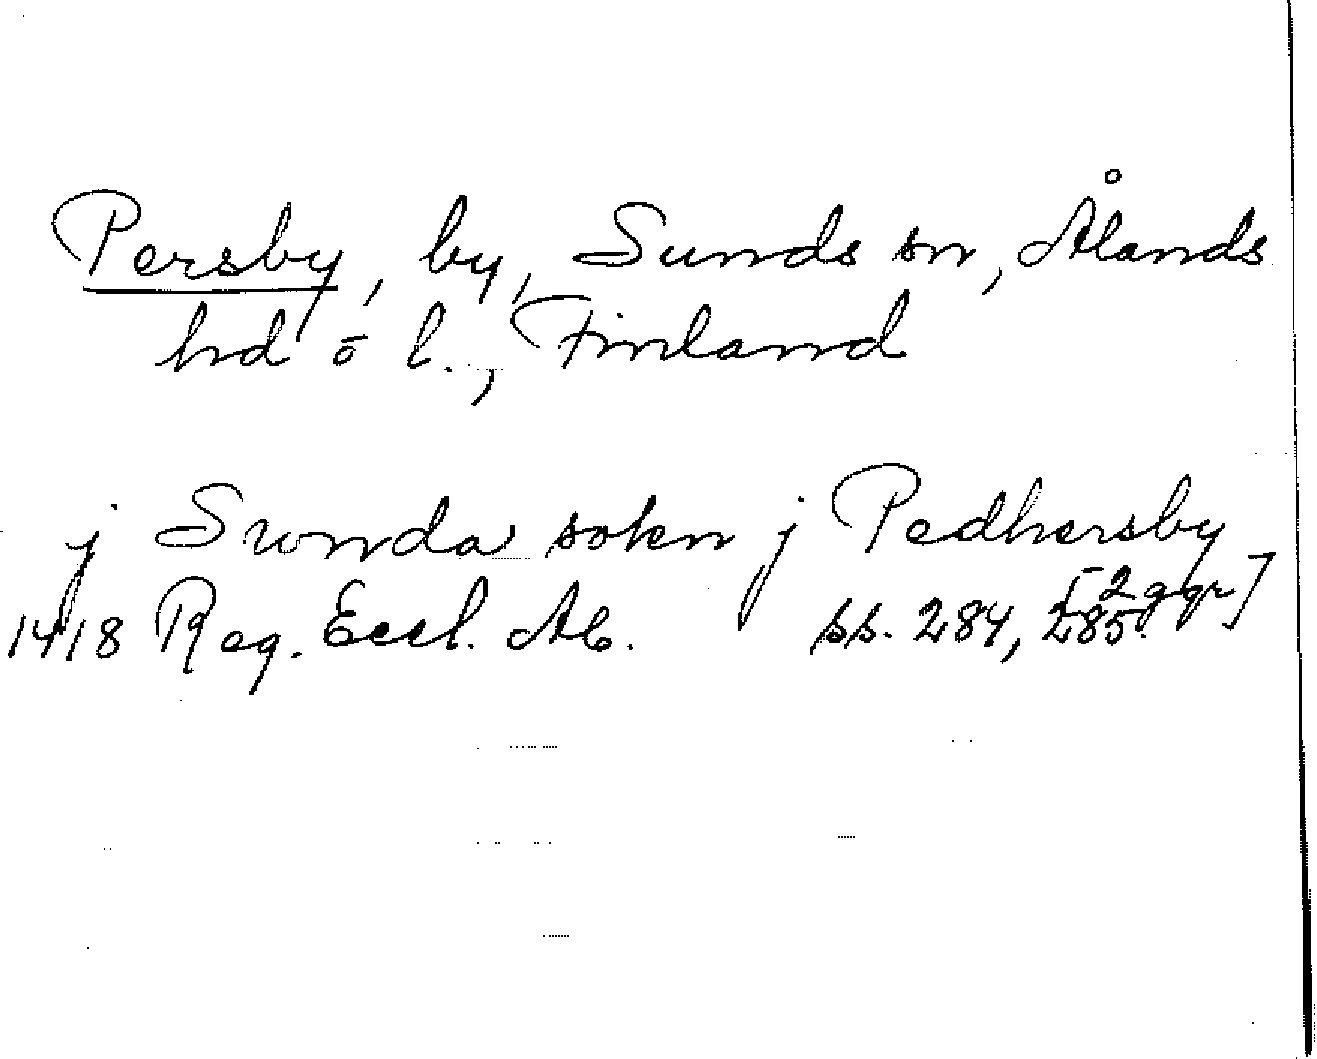 Persby, by, Sunds sn, Ålands
hd o l., Finland
j Swnda sokn j Pedhersby
[2 ggr]
1418 Reg. Eccl. Ab. ss. 284, 285.